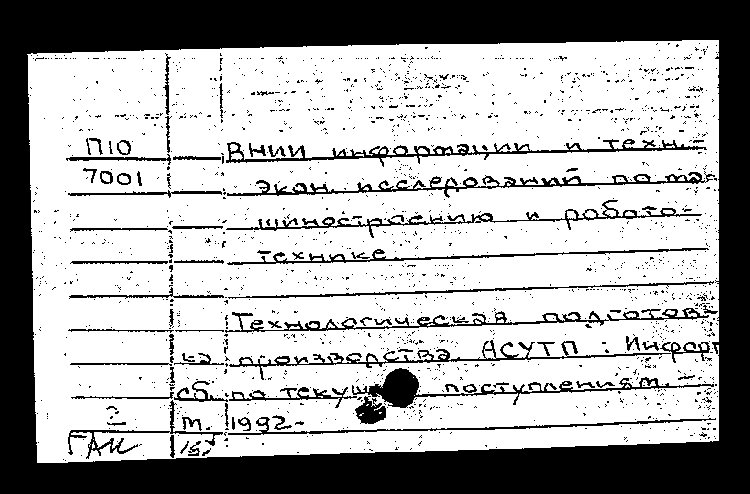 П10 ВНИИ информации и техн.-
7001 экон. исследований по ма-
шиностроению и робото-
технике.
Технологическая подготов-
ка производства АСУТП : Информ
сб. по текущ поступлениям. -
2 М. 1992-
ГАИ